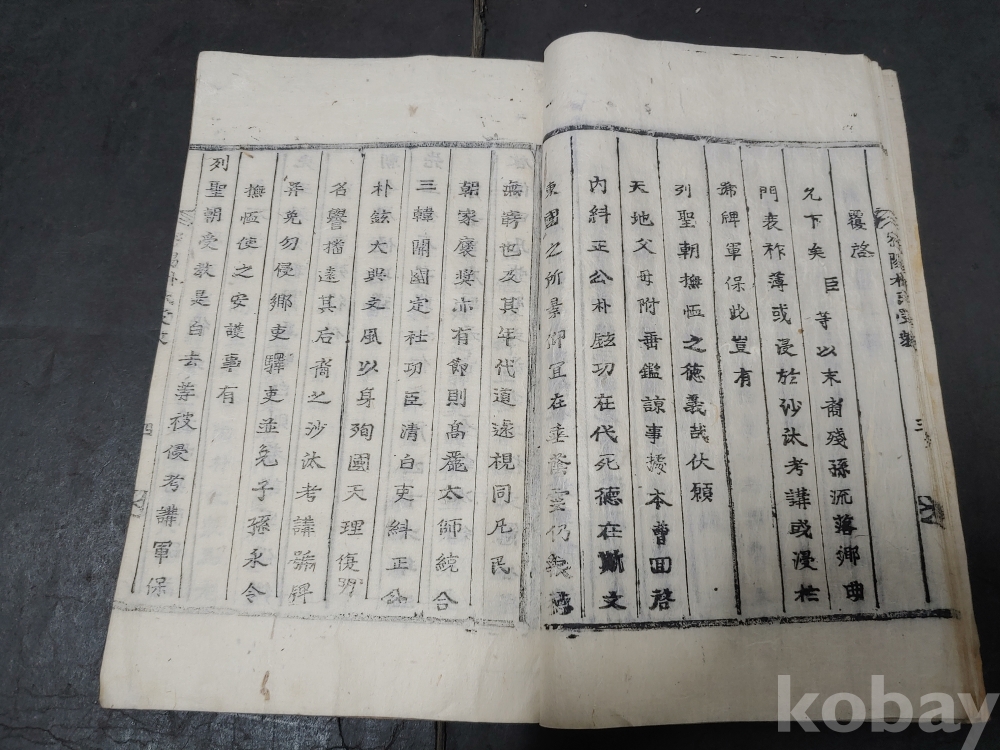 覆啓
允下矣 臣等以末裔殘孫流落鄉曲
門衰祚薄或侵於沙汰考講或漫於
常碑軍保此豈有
列聖朝撫恤之德義哉伏願
天地父母附垂鑑諒事據本曹回啓
內糾正公朴鉉功在代死德在斯文
東國之所景仰宜在垂蔭雲仍
無嵜也及其年代道遠視同凡民
朝家褒奬亦有節則高麗太師統合
三韓開國定社功臣淸白吏糾正公
朴鉉大興文風以身殉國天理復
名譽播遠其后裔之沙汰考講號牌
并免勿侵鄉吏驛吏並免子孫永令
撫恤使之安護事有
列聖朝受敎是白去等被侵考講軍保
三
四
kobay